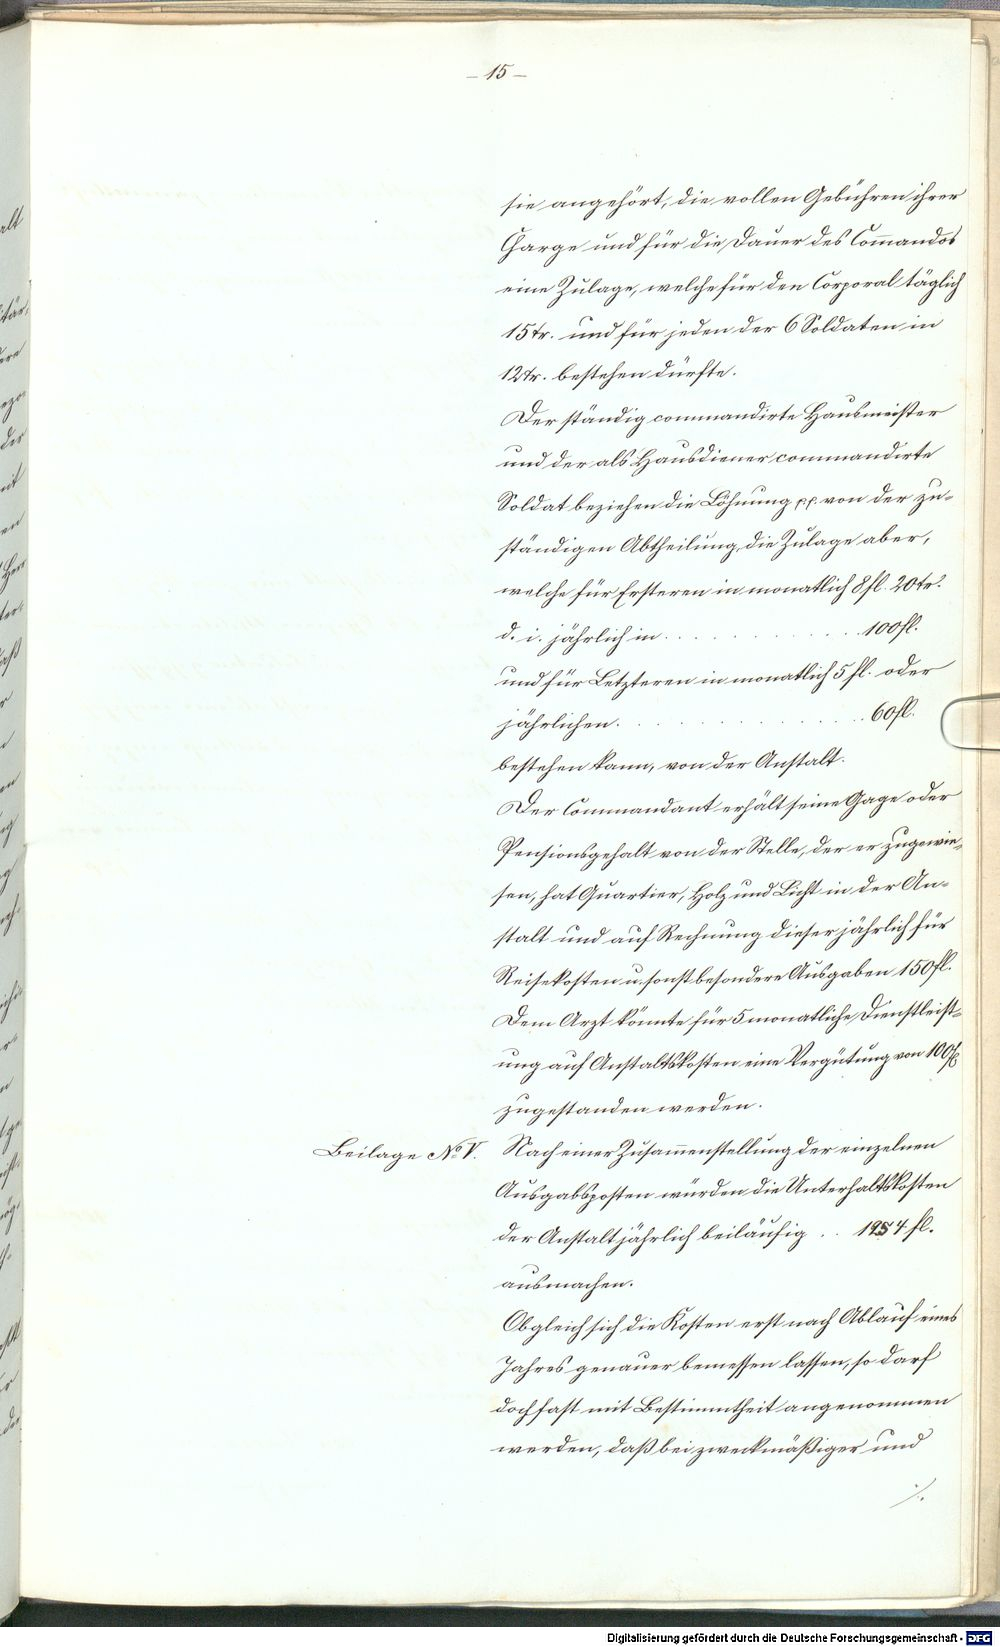 - 15 -
sie angehört, die vollen Gebühren ihrer
Charge und für die Dauer des Com̅andos
eine Zulage, welche für den Corporal täglich
15 kr. und für jeden der 6 Soldaten in
12 kr. bestehen dürfte.
Der ständig commandirte Hausmeister
und der als Hausdiener commandirte
Soldat beziehen die Löhnung pp. von der zu-
ständigen Abtheilung, die Zulage aber,
welche für Ersteren in monatlich 8 fl. 20 kr.
d. i. jährlich in . . . . . . . . . . . 100 fl.
und für Letzteren in monatlich 5 fl. oder
jährlichen . . . . . . . . . . . . . 60 fl.
bestehen kann, von der Anstalt.
Der Commandant erhält seine Gage oder
Pensionsgehalt von der Stelle, der er zugewie-
sen, hat Quartier, Holz und Licht in der An-
stalt und auf Rechnung dieser jährlich für
Reisekosten u. sonst besondere Ausgaben 150 fl.
Dem Arzt könnte für 5 monatliche Dienstleist-
ung auf Anstaltskosten eine Vergütung von 100 fl.
zugestanden werden.
Beilage No. V.
Nach einer Zusam̅enstellung der einzelnen
Ausgabsposten würden die Unterhaltskosten
der Anstalt jährlich beiläufig . . 1954 fl.
ausmachen.
Obgleich sich die Kosten erst nach Ablauf eines
Jahres genauer bemessen lassen, so darf
doch fast mit Bestimmtheit angenommen
werden, daß bei zweckmäßiger und
./.
Digitalisierung gefördert durch die Deutsche Forschungsgemeinschaft - DFG